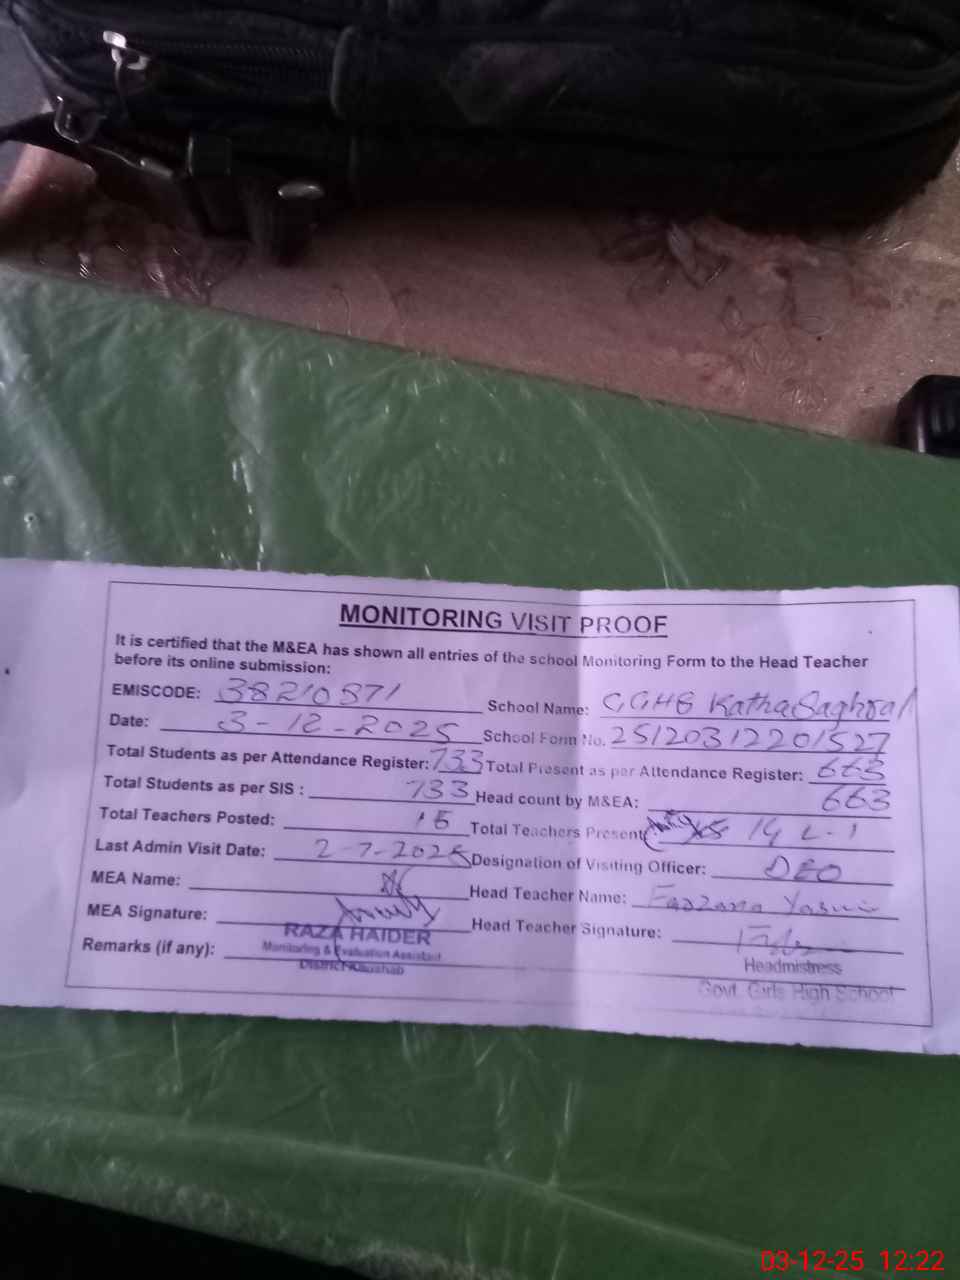 MONITORING VISIT PROOF
It is certified that the M&EA has shown all entries of the school Monitoring Form to the Head Teacher
before its online submission:
EMISCODE: 38210371 School Name: GGHS Katha Saghral
Date: 3-12-2025 School Form No. 25120312201527
Total Students as per Attendance Register: 733 Total Present as per Attendance Register: 663
Total Students as per SIS : 733 Head count by M&EA: 663
Total Teachers Posted: 15 Total Teachers Present: 14 L-1
Last Admin Visit Date: 2-7-2025 Designation of Visiting Officer: DEO
MEA Name: Head Teacher Name: Farzana Yasmin
MEA Signature: Head Teacher Signature:
RAZA HAIDER
Monitoring & Evaluation Assistant
District Khushab
Remarks (if any):
Headmistress
Govt. Girls High School
03-12-25 12:22